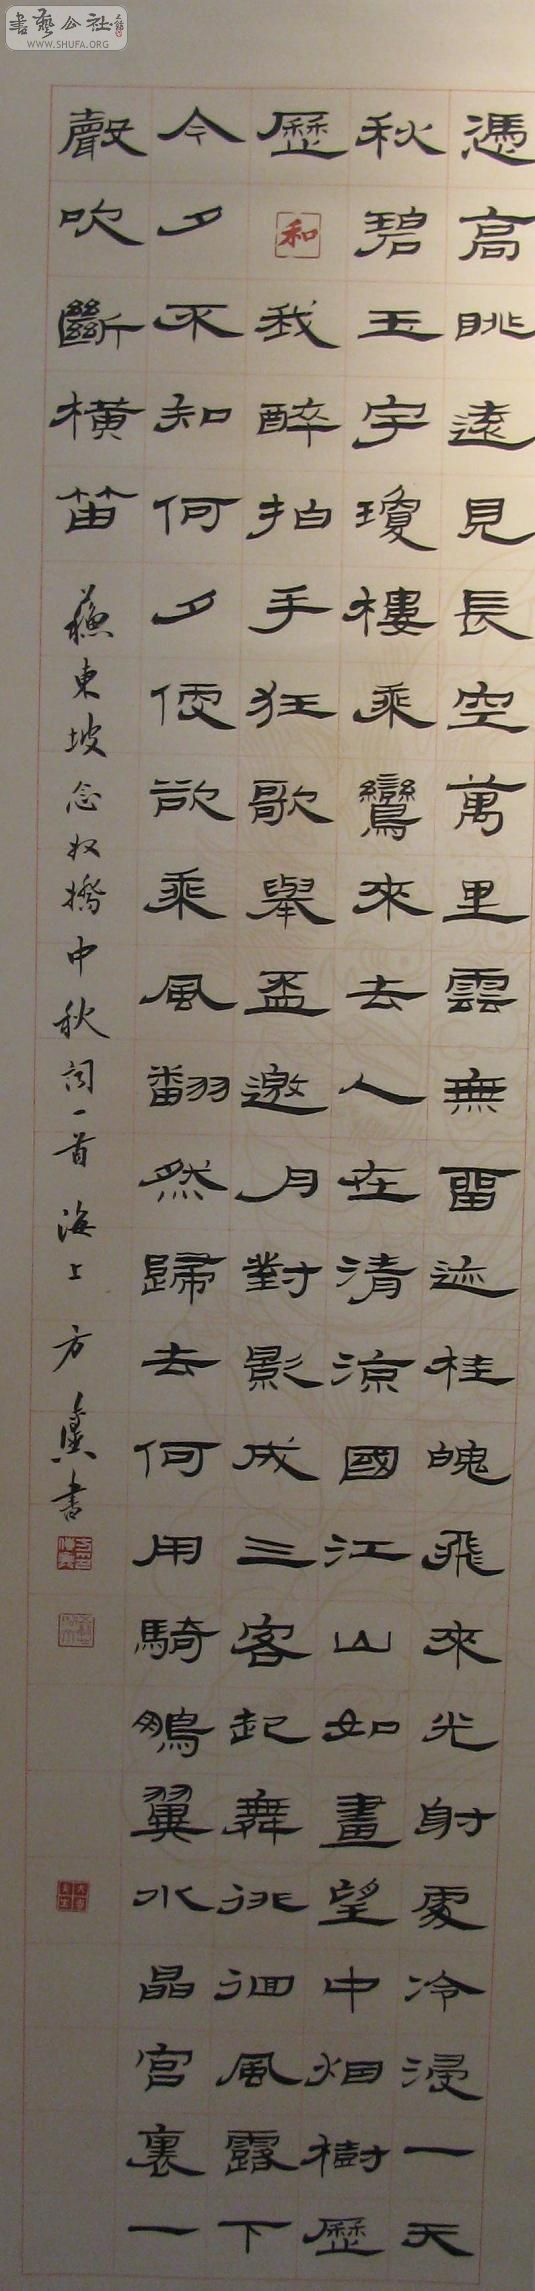 書藝公社
WWW.SHUFA.ORG
憑高眺遠見長空萬里雲無留迹桂魄飛來光射處冷浸一天
秋碧玉宇瓊樓乘鸞來去人在清涼國江山如畫望中烟樹歷
歷和我醉拍手狂歌舉盃邀月對影成三客起舞徘徊風露下
今夕不知何夕便欲乘風翻然歸去何用騎鵬翼水晶宮裏一
聲吹斷橫笛
蘇東坡念奴撟中秋詞一首海上方書